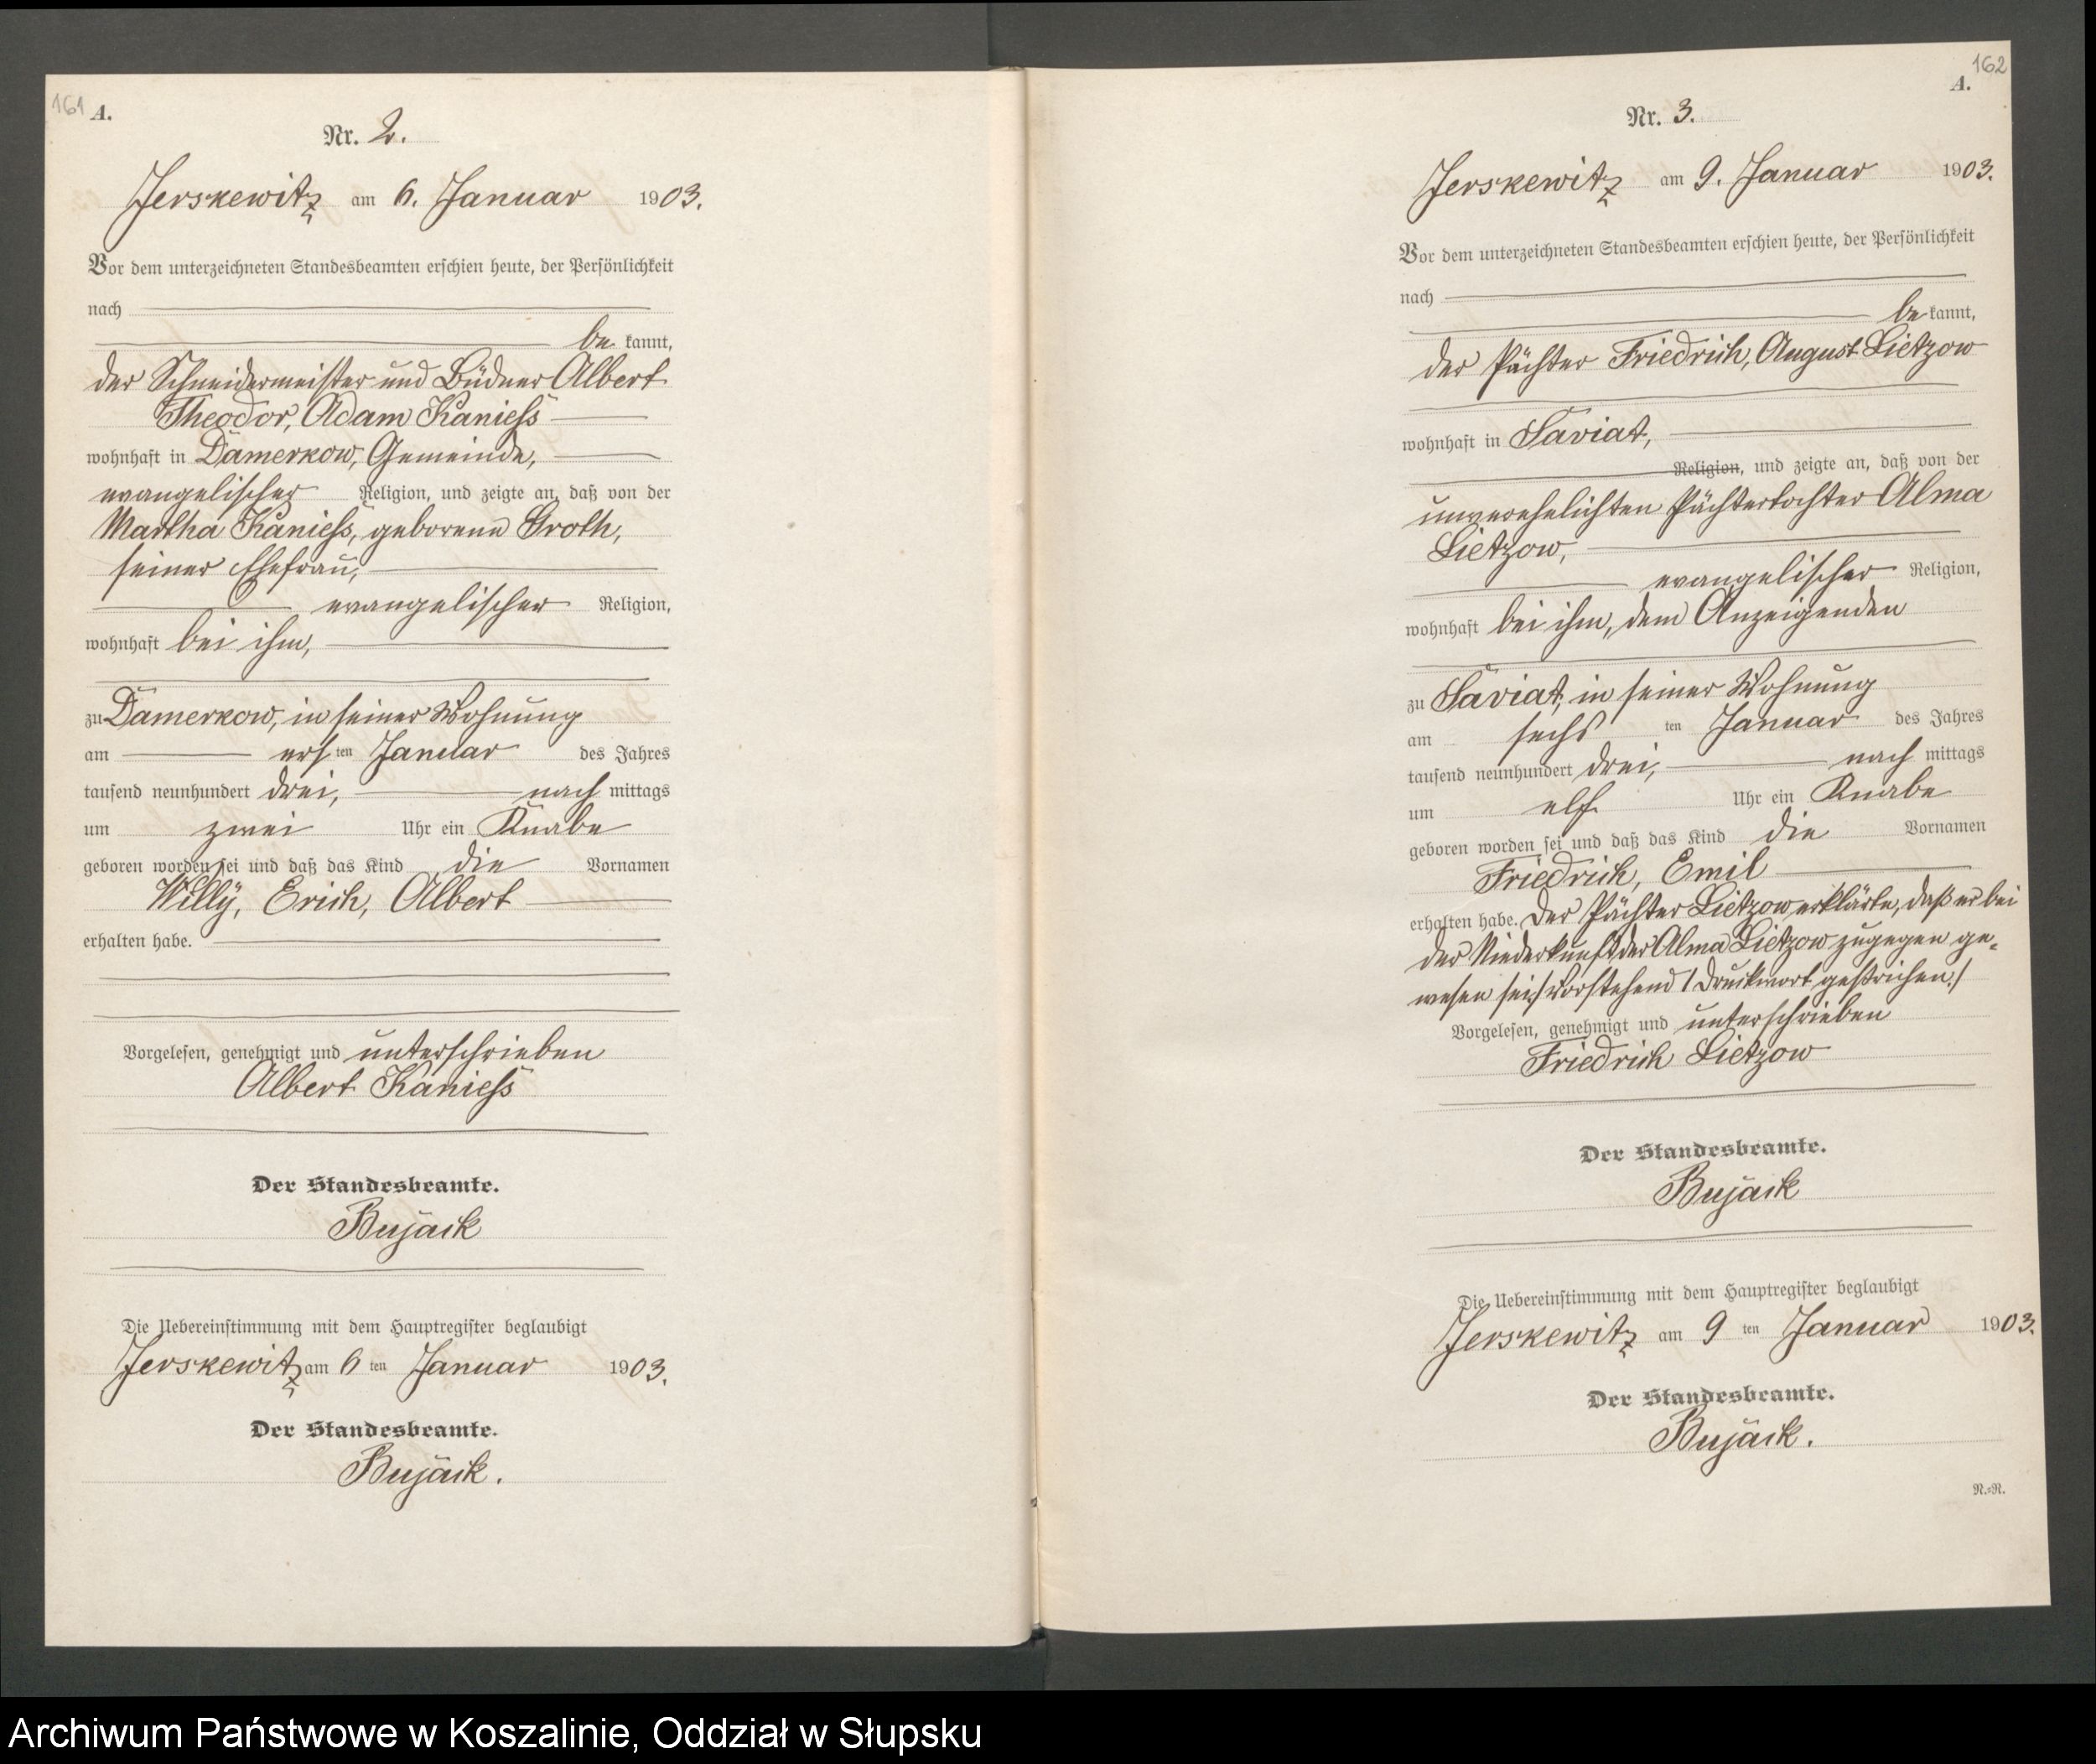 161 A.
Nr. 2.
Jerskewitz am 6. Januar 1903.
Vor dem unterzeichneten Standesbeamten erschien heute, der Persönlichkeit
nach
be kannt,
der Schneidermeister und Büdner Albert
Theodor, Adam Kaniess
wohnhaft in Damerkow, Gemeinde,
evangelischer Religion, und zeigte an, daß von der
Martha Kaniess, geborene Groth,
seiner Ehefrau,
evangelischer Religion,
wohnhaft bei ihm,
zu Damerkow, in seiner Wohnung
am ers ten Januar des Jahres
tausend neunhundert drei, nach mittags
um zwei Uhr ein Knabe
geboren worden sei und daß das Kind die Vornamen
Willy, Erich, Albert
erhalten habe.
Vorgelesen, genehmigt und unterschrieben
Albert Kaniess
Der Standesbeamte.
Bujack
Die Uebereinstimmung mit dem Hauptregister beglaubigt
Jerskewitz am 6 ten Januar 1903.
Der Standesbeamte.
Bujack.
162
A.
Nr. 3.
Jerskewitz am 9. Januar 1903.
Vor dem unterzeichneten Standesbeamten erschien heute, der Persönlichkeit
nach
be kannt,
der Pächter Friedrich, August Lietzow
wohnhaft in Saviat,
Religion, und zeigte an, daß von der
unverehelichten Pächtertochter Alma
Lietzow,
evangelischer Religion,
wohnhaft bei ihm, dem Anzeigenden
zu Saviat, in seiner Wohnung
am sechs ten Januar des Jahres
tausend neunhundert drei, nach mittags
um elf Uhr ein Knabe
geboren worden sei und daß das Kind die Vornamen
Friedrich, Emil
erhalten habe. Der Pächter Lietzow erklärte, daß er bei
der Niederkunft der Alma Lietzow zugegen ge-
wesen sei./ Vorstehend 1 Druckwort gestrichen./
Vorgelesen, genehmigt und unterschrieben
Friedrich Lietzow
Der Standesbeamte.
Bujack
Die Uebereinstimmung mit dem Hauptregister beglaubigt
Jerskewitz am 9 ten Januar 1903.
Der Standesbeamte.
Bujack.
R.=R.
Archiwum Państwowe w Koszalinie, Oddział w Słupsku